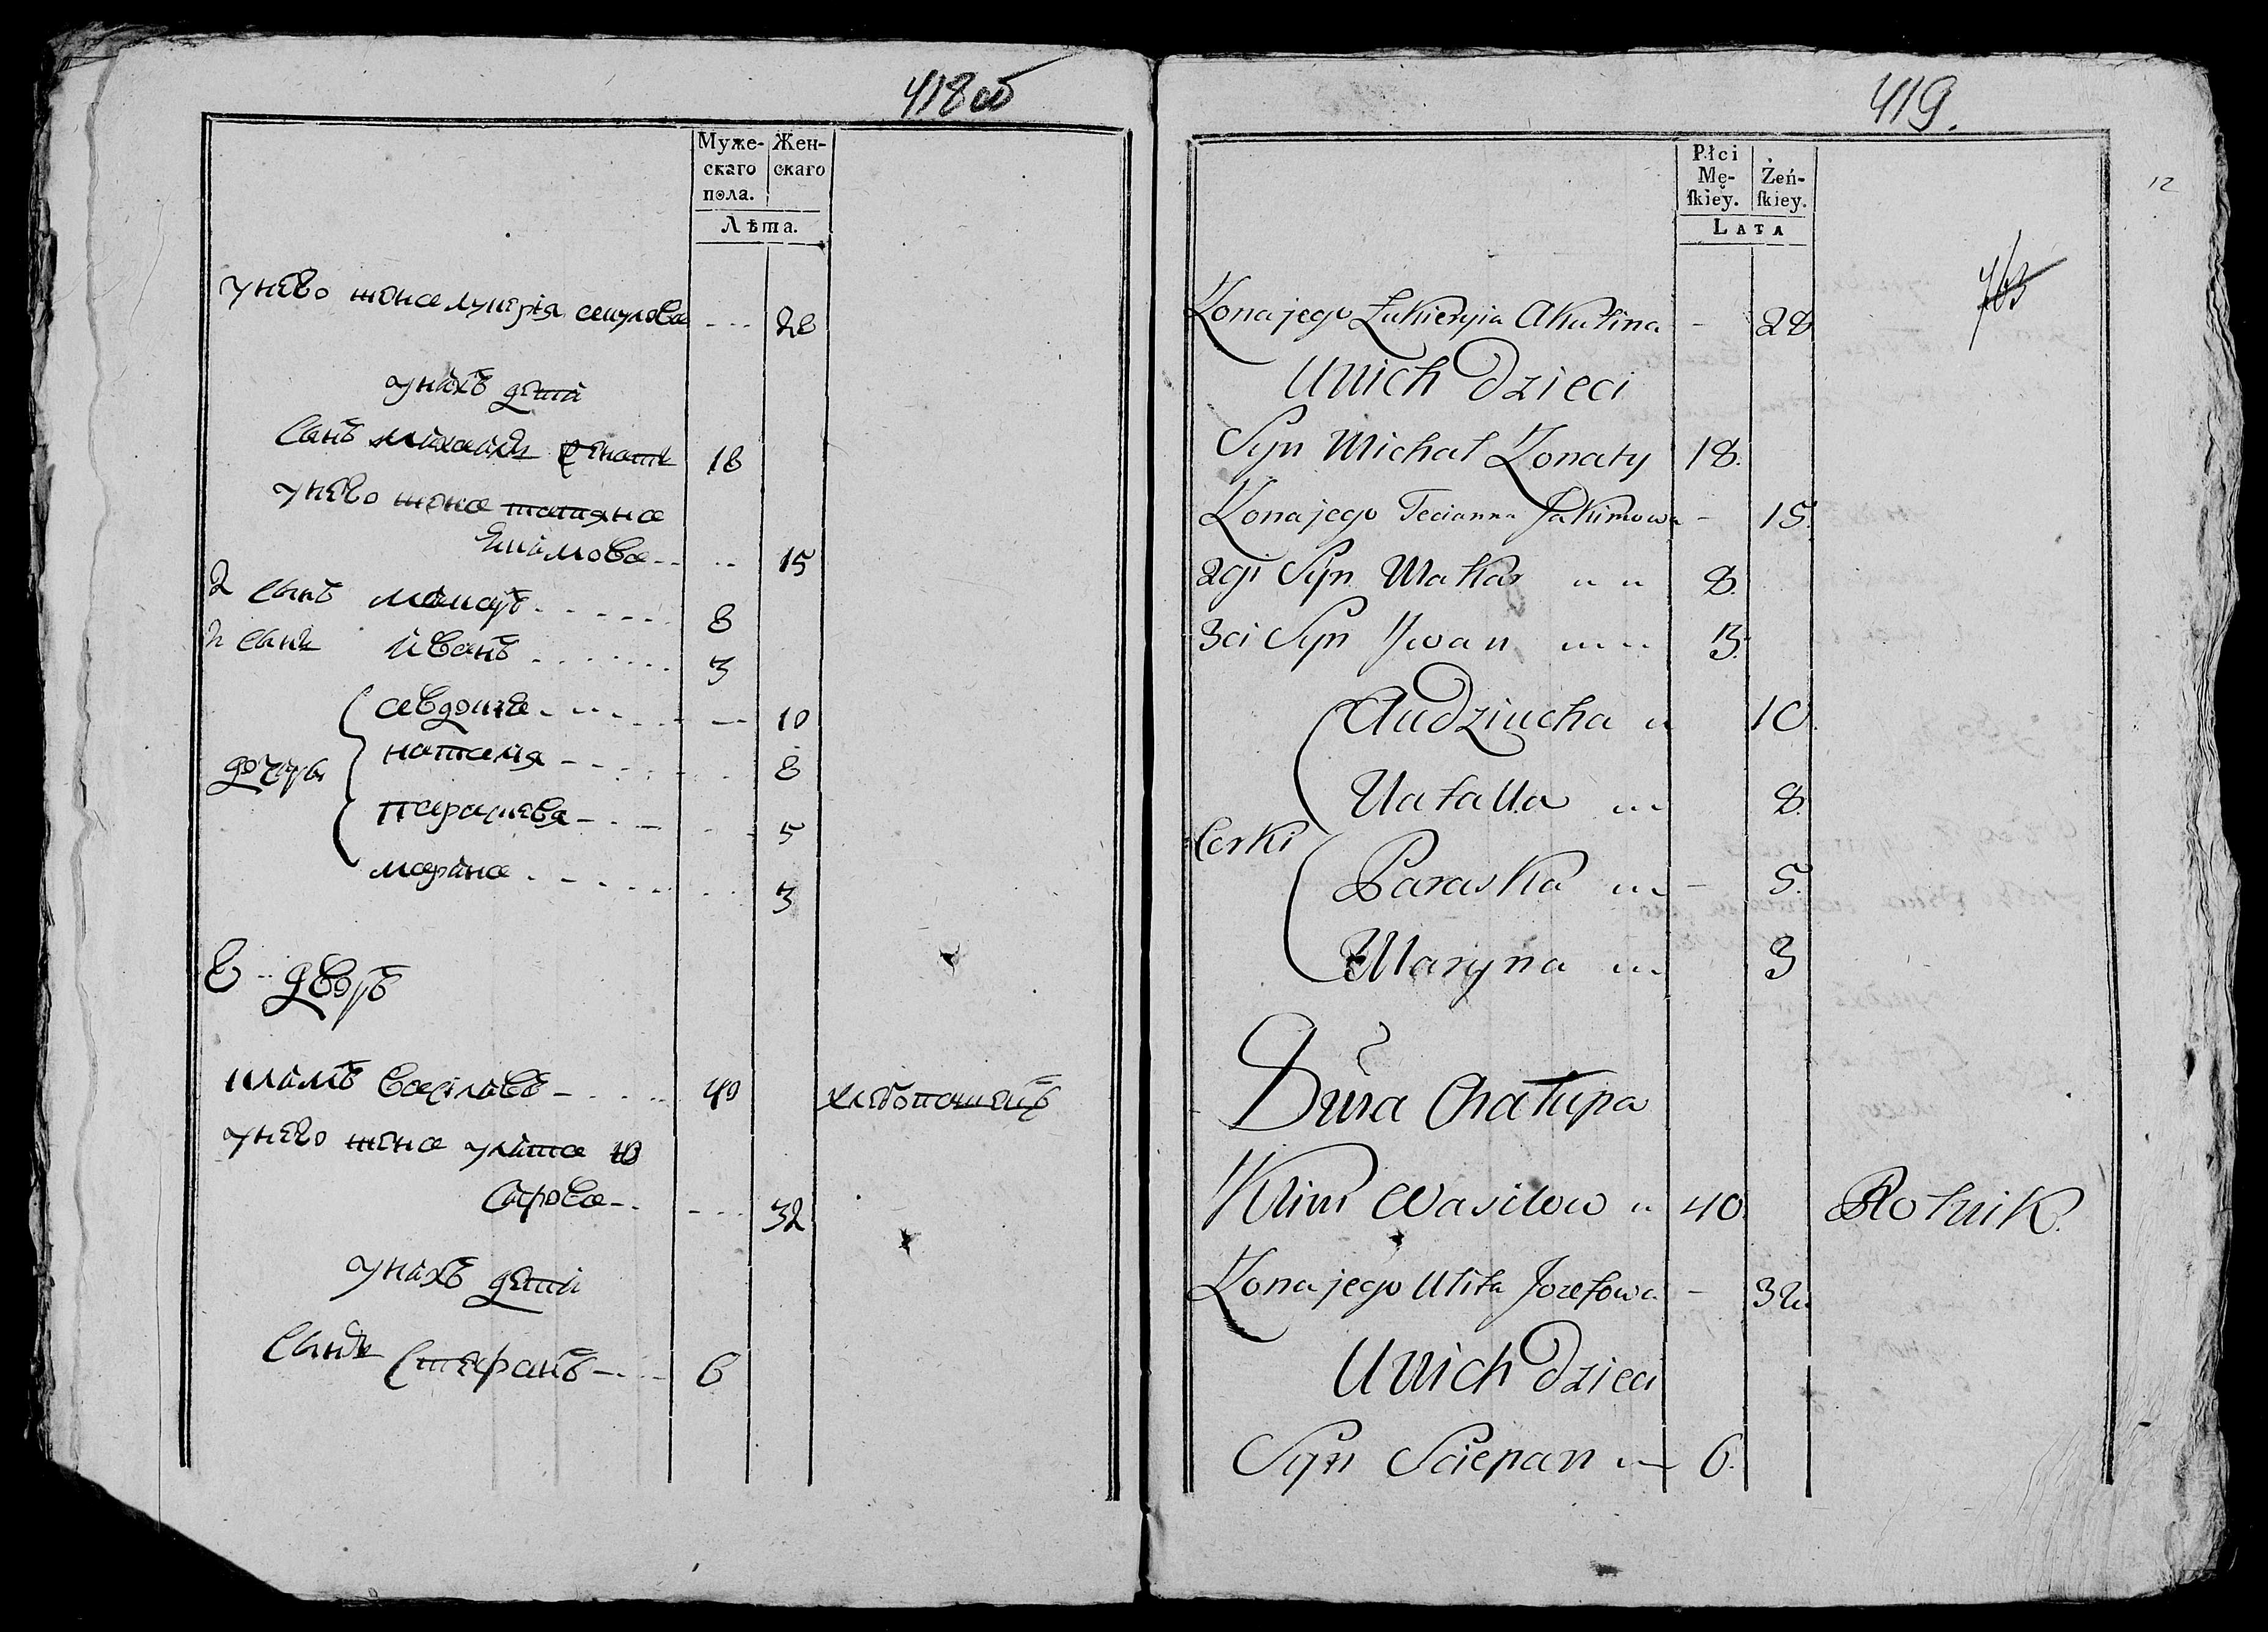 418 об
Муже-
скаго
пола.
Жен-
скаго
Лѣта.
унево жена лукерія акулова 28
унихъ дети
Сынъ михайла женатъ 18
унево жена татияна
Якимова 15
2 Сынъ макаръ 8
3 Сынъ иванъ 3
дочери
авдотия 10
наталия 8
Парасковя 5
марина 3
8 дворъ
климъ василевъ 40 хлебопашецъ
унево жена улита ю
сирова 32
унихъ дети
Сынъ Стефанъ 6
419.
12
Płci
Mę-
ſkiey.
Zeń-
ſkiey.
LATA
763
Zona jego Łukieryia Akulina 28
U nich dzieci
Syn Michał Zonaty 18.
Zona jego Tecianna Jakimowa 15.
2gi Syn Makar 8.
3ci Syn Jwan 3.
Corki
Audziucha 10.
Natalla 8.
Paraska 5.
Maryna 3
8ma Chałupa
Klim Wasilow 40. Rolnik.
Zona jego Ulita Jozefowa 32.
U nich dzieci
Syn Sciepan 6.